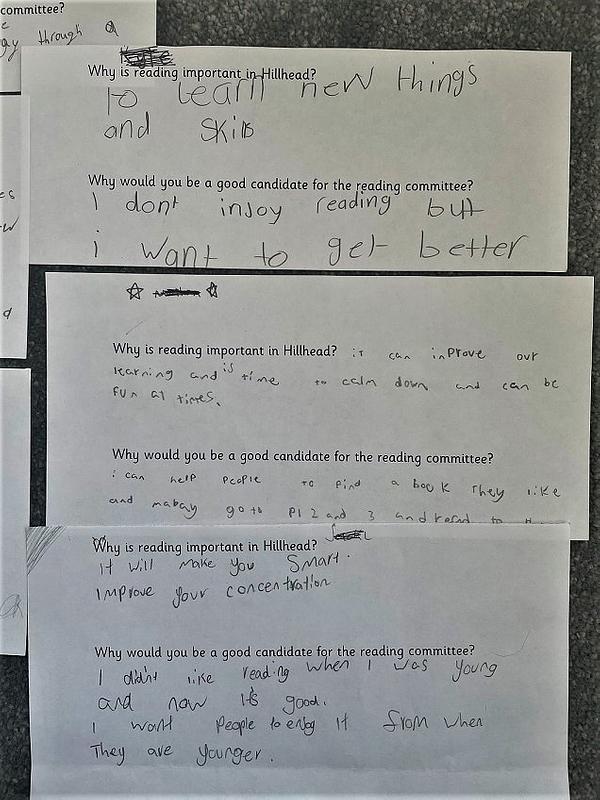 committee?
through a
Why is reading important in Hillhead?
to learn new things
and skills
Why would you be a good candidate for the reading committee?
I dont injoy reading but
i want to get better
Why is reading important in Hillhead? it can inprove our
learning and is time to calm down and can be
fun at times.
Why would you be a good candidate for the reading committee?
i can help people to find a book they like
and mabay go to P1 2 and 3 and read to
Why is reading important in Hillhead?
It will make you Smart.
Improve your concentration
Why would you be a good candidate for the reading committee?
I didn't like reading when I was young
and now it's good.
I want people to enjoy it from when
They are younger.